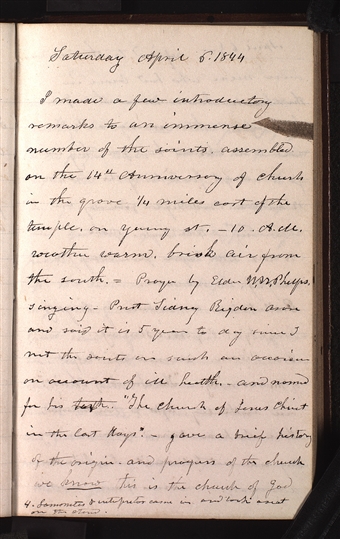 Saturday April 6. 1844
I made a few introductory
remarks to an immense
number of the saints. assembled
on the 14th Anniversary of Church
in the grove 1/4 miles east of the
temple. on young st. – 10. A.M.
weather warm. brisk air from
the south. = Prayer by Elder W W Phelps.
singing – Prest Sidney Rigdon arose
and said it is 5 years to day since I
met the saints on such an occasion
on account of ill health. – and named
for his text. "The Church of Jesus Christ
in the last days" – gave a brief history
of the origin. and progress of the church
we know this is the church of God
4. Lamonites & interpreter came in and took a seat
on the stand.